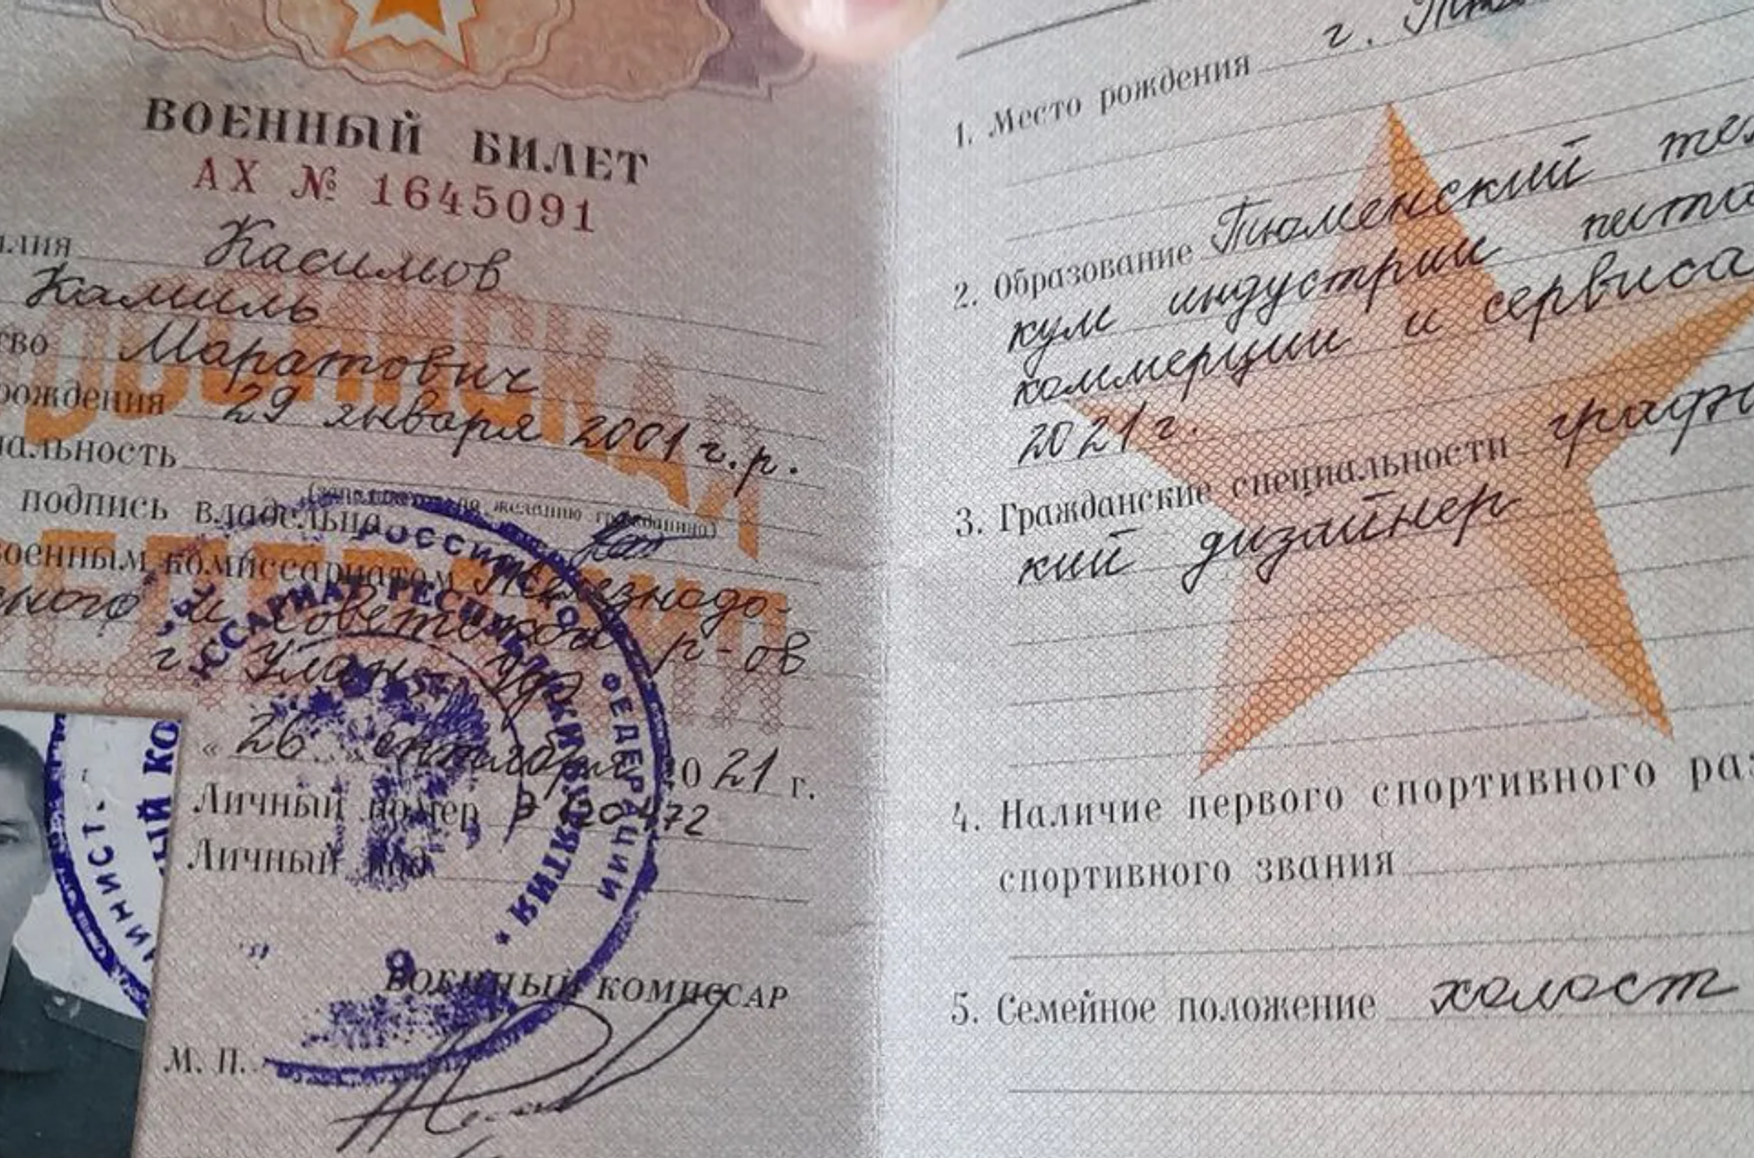 ВОЕННЫЙ БИЛЕТ
АХ № 1645091
илия Касимов
Камиль
тво Маратович
рождения 29 января 2001 г.р.
альность
(заполняется по желанию гражданина)
подпись владельца
военным комиссариатом Железнодо-
ского и Советского р-ов
г. Улан-Удэ
« 26 сентября 2021 г.
Личный номер
Личный код
ВОЕННЫЙ КОМИССАР
М. П.
ВОИНСКАЯ
РОССИЙСКОЙ ФЕДЕРАЦИИ
9
1. Место рождения г.
2. Образование Тюменский тех
кум индустрии пита
коммерции и сервиса
2021 г.
3. Гражданские специальности графи
кий дизайнер
4. Наличие первого спортивного раз
спортивного звания
5. Семейное положение холост